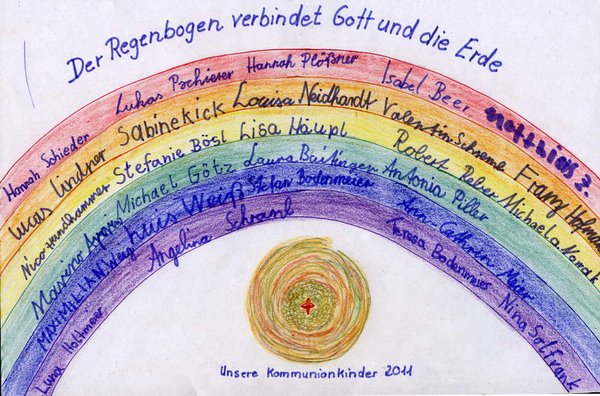 Der Regenbogen verbindet Gott und die Erde
Hannah Schieder Lukas Pschierer Hannah Plößner Isabel Beer Matthias Z.
Lucas Lindner Sabine Kick Louisa Neidhardt Valentin Schrembs Franz Hofmann
Nico Stefanie Bösl Lisa Häupl Robert Reber Michaela Novak
Michael Götz Laura Antonia Piller
MAXIMILIAN Weiß Luis Weiß Stefan Bodenmeier Ann-Cathrin Meier
Luna Angelina Schraml Teresa Bodenmeier Nina Solfrank
Unsere Kommunionkinder 2011